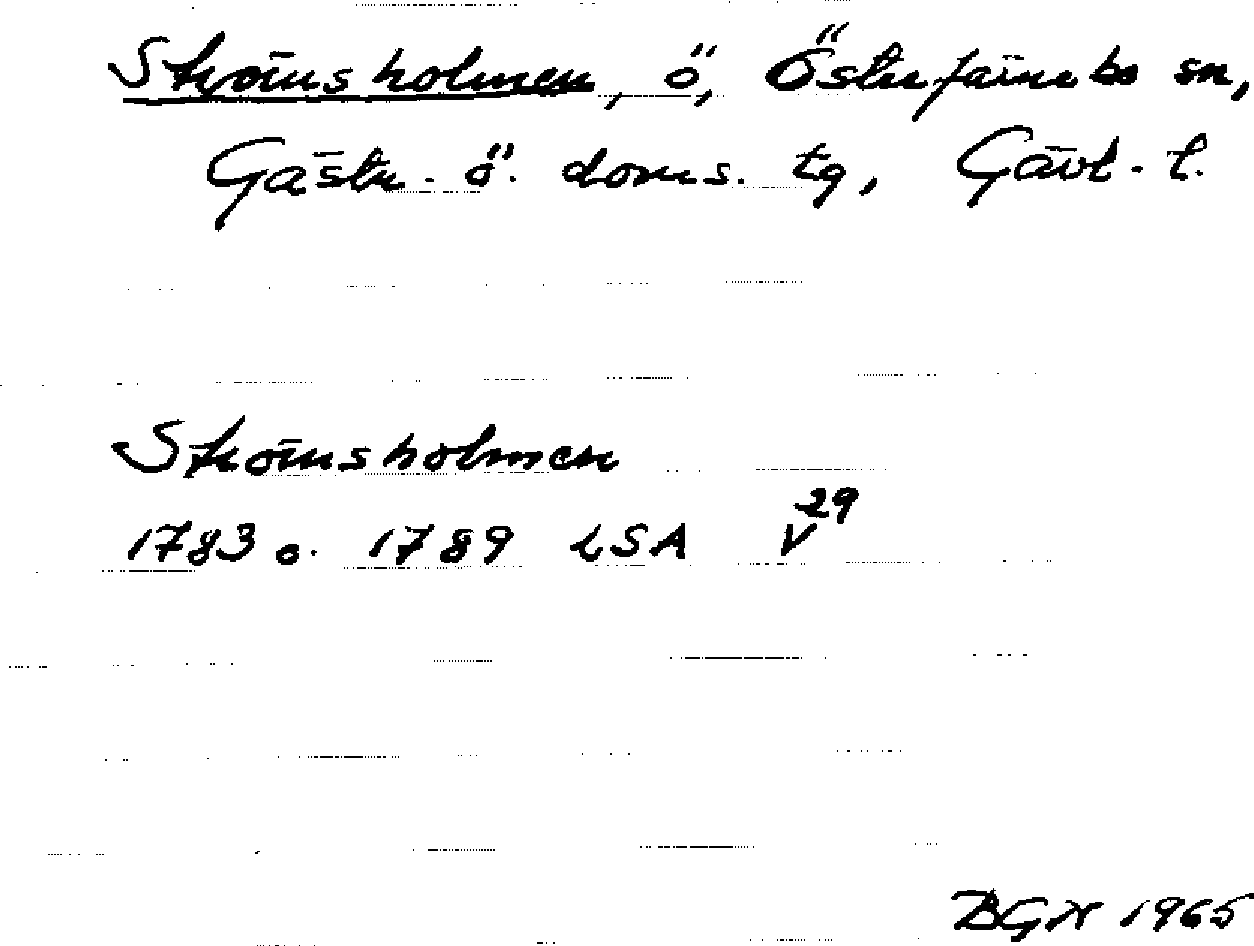 Strömsholmen, ö, Österfärnebo sn,
Gästr. ö. doms. tg, Gävl. l.
Strömsholmen
1783 o. 1789 LSA V29
BGN 1965